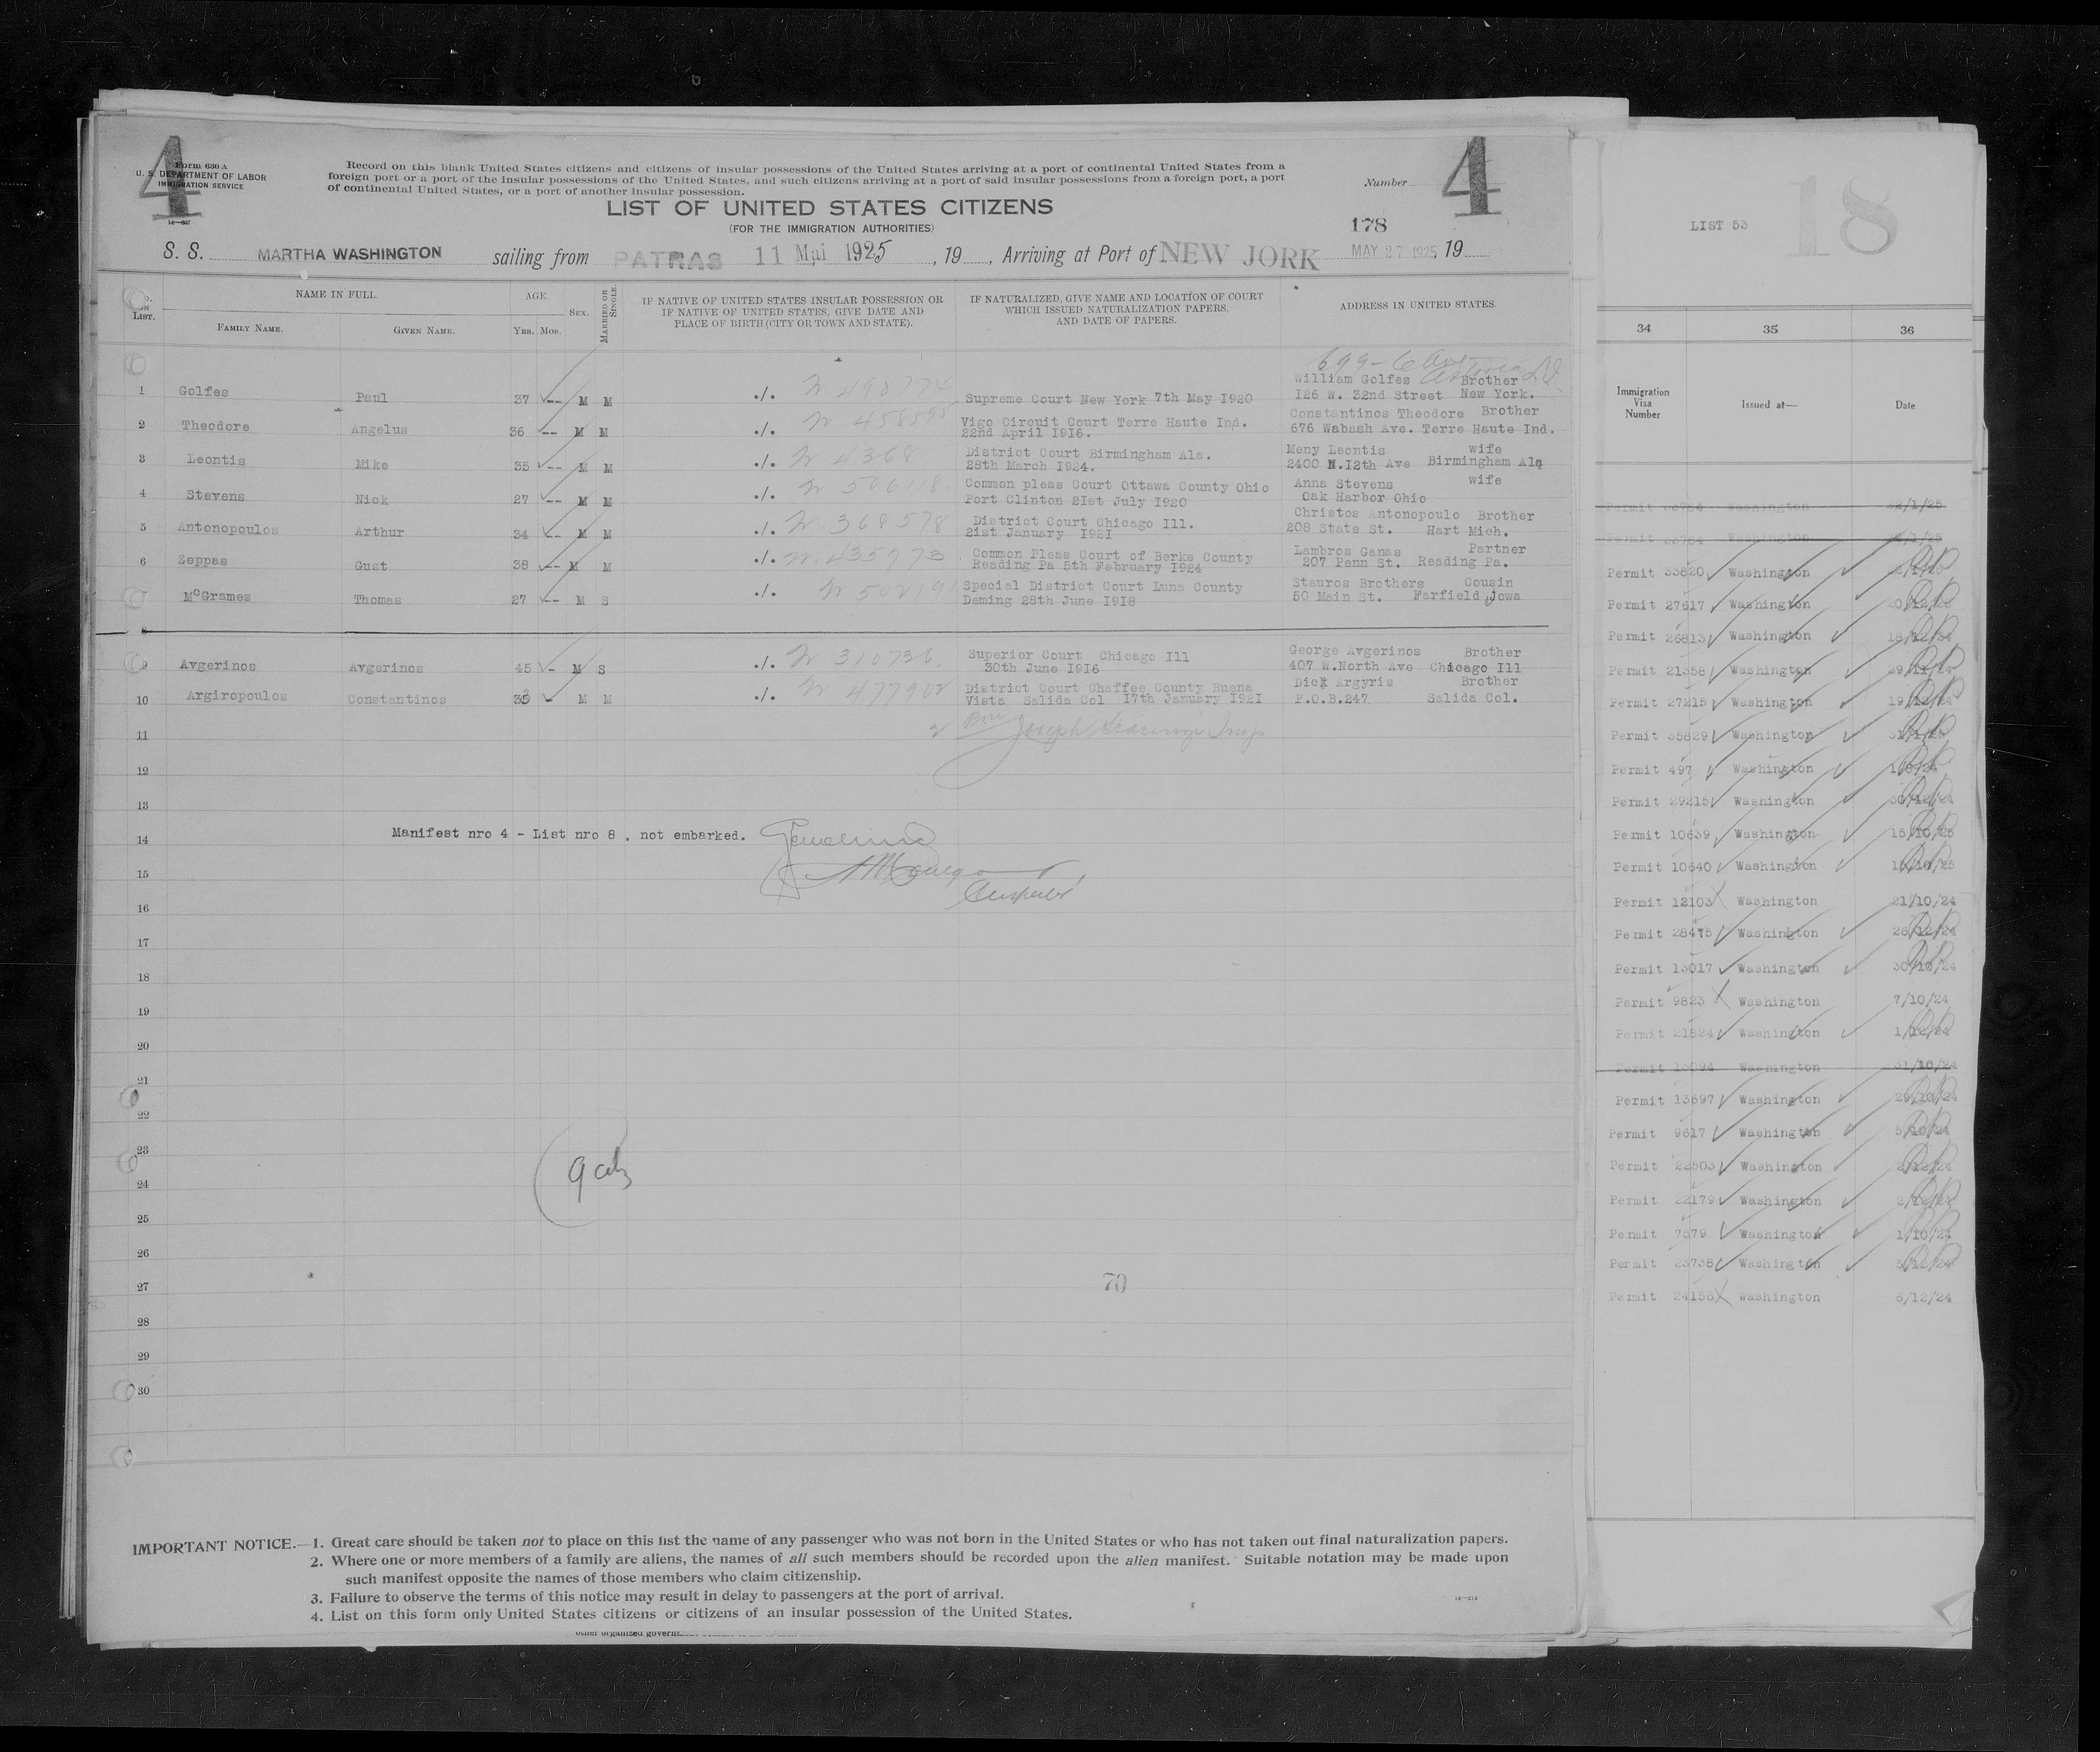 4
Form 630 A
U. S. DEPARTMENT OF LABOR
IMMIGRATION SERVICE
14—607
Record on this blank United States citizens and citizens of insular possessions of the United States arriving at a port of continental United States from a
foreign port or a port of the insular possessions of the United States, and such citizens arriving at a port of said insular possessions from a foreign port, a port
of continental United States, or a port of another insular possession.
Number
4
LIST OF UNITED STATES CITIZENS
(FOR THE IMMIGRATION AUTHORITIES)
178
S. S. MARTHA WASHINGTON sailing from PATRAS 11 Mai 1925, 19 , Arriving at Port of NEW JORK MAY 27 1925, 19
No. ON LIST.
NAME IN FULL.
FAMILY NAME. GIVEN NAME.
AGE.
YRS. MOS.
SEX.
MARRIED OR SINGLE.
IF NATIVE OF UNITED STATES INSULAR POSSESSION OR
IF NATIVE OF UNITED STATES, GIVE DATE AND
PLACE OF BIRTH (CITY OR TOWN AND STATE).
IF NATURALIZED, GIVE NAME AND LOCATION OF COURT
WHICH ISSUED NATURALIZATION PAPERS,
AND DATE OF PAPERS.
ADDRESS IN UNITED STATES.
699-6 Ave
Astoria L I
William Golfes Brother
1 Golfes Paul 37 -- M M ./. Supreme Court New York 7th May I920 I26 W. 32nd Street New York.
Vigo Circuit Court Terre Haute Ind. Constantinos Theodore Brother
2 Theodore Angelus 36 -- M M ./. 22nd April I9I6. 676 Wabash Ave. Terre Haute Ind.
District Court Birmingham Ala. Meny Leontis wife
3 Leontis Mike 35 -- M M ./. N 4368 28th March I924. 2400 N.I2th Ave Birmingham Ala
Common pleas Court Ottawa County Ohio Anna Stevens wife
4 Stevens Nick 27 -- M M ./. Port Clinton 2Ist July I920 Oak Harbor Ohio
District Court Chicago Ill. Christos Antonopoulo Brother
5 Antonopoulos Arthur 34 -- M M ./. N 368578 2ist January I92I 208 State St. Hart Mich.
Common Pleas Court of Berks County Lambros Ganas Partner
6 Zeppas Gust 38 -- M M ./. N 435973 Reading Pa 5th February I924 207 Penn St. Reading Pa.
Special District Court Luna County Stauros Brothers Cousin
7 McGrames Thomas 27 -- M S ./. Deming 28th June I9I8 50 Main St. Farfield Jowa
8
Superior Court Chicago Ill George Avgerinos Brother
9 Avgerinos Avgerinos 45 - M S ./. N 310736 30th June I9I6 407 W.North Ave Chicago Ill
District Court Chaffee County Buena Dick Argyris Brother
10 Argiropoulos Constantinos - M M ./. N 477902 Vista Salida Col I7th January I92I P.O.B.247 Salida Col.
11
Joseph Insp
12
13
14 Manifest nro 4 - List nro 8 , not embarked.
15
16
17
18
19
20
21
22
23
24
25
26
27
28
29
30
70
IMPORTANT NOTICE.—1. Great care should be taken not to place on this list the name of any passenger who was not born in the United States or who has not taken out final naturalization papers.
2. Where one or more members of a family are aliens, the names of all such members should be recorded upon the alien manifest. Suitable notation may be made upon
such manifest opposite the names of those members who claim citizenship.
3. Failure to observe the terms of this notice may result in delay to passengers at the port of arrival.
4. List on this form only United States citizens or citizens of an insular possession of the United States.
14—214
LIST 53
18
34 35 36
Immigration
Visa
Number
Issued at—
Date
Permit Washington
Permit Washington
Permit 33820 Washington
Permit 27617 Washington
Permit 26813 Washington
Permit 21358 Washington
Permit 27215 Washington
Permit 35829 Washington
Permit 497 Washington
Permit 29215 Washington
Permit 10639 Washington 15/10/25
Permit 10640 Washington 15/10/25
Permit 12103 Washington 21/10/24
Permit 28475 Washington 26/12/24
Permit 13017 Washington 30/10/24
Permit 9823 Washington 7/10/24
Permit 21824 Washington 1/12/24
Permit 13094 Washington 31/10/24
Permit 13697 Washington 29/10/24
Permit 9617 Washington 5/10/24
Permit 22503 Washington
Permit 22179 Washington 2/12/24
Permit 7579 Washington 1/10/24
Permit 23738 Washington 5/12/24
Permit 24156 Washington 6/12/24